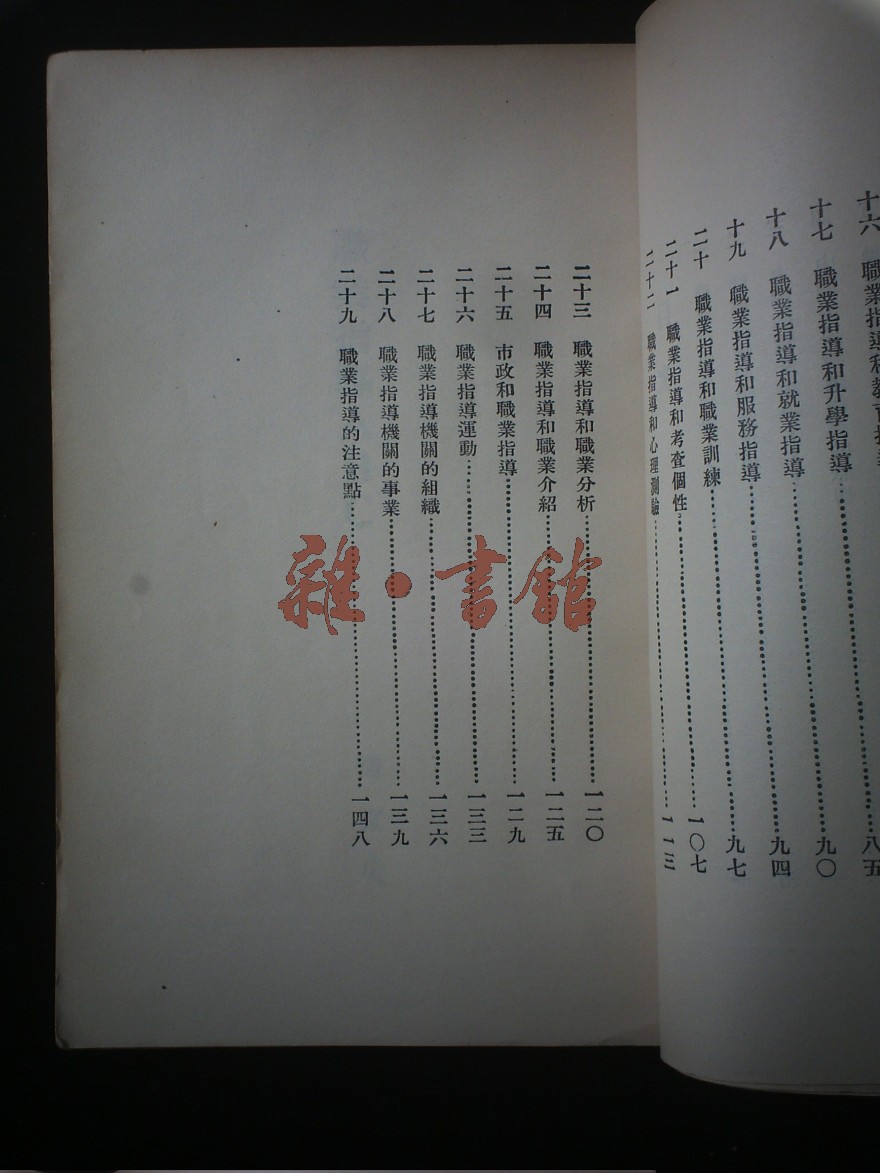 十六 職業指導和教育指
十七 職業指導和升學指導……八五
十八 職業指導和就業指導……九〇
十九 職業指導和服務指導……九四
二十 職業指導和職業訓練……九七
二十一 職業指導和考查個性……一〇七
二十二 職業指導和心理測驗……一一三
二十三 職業指導和職業分析……一二〇
二十四 職業指導和職業介紹……一二五
二十五 市政和職業指導……一二九
二十六 職業指導運動……一三三
二十七 職業指導機關的組織……一三六
二十八 職業指導機關的事業……一三九
二十九 職業指導的注意點……一四八
雜·書館